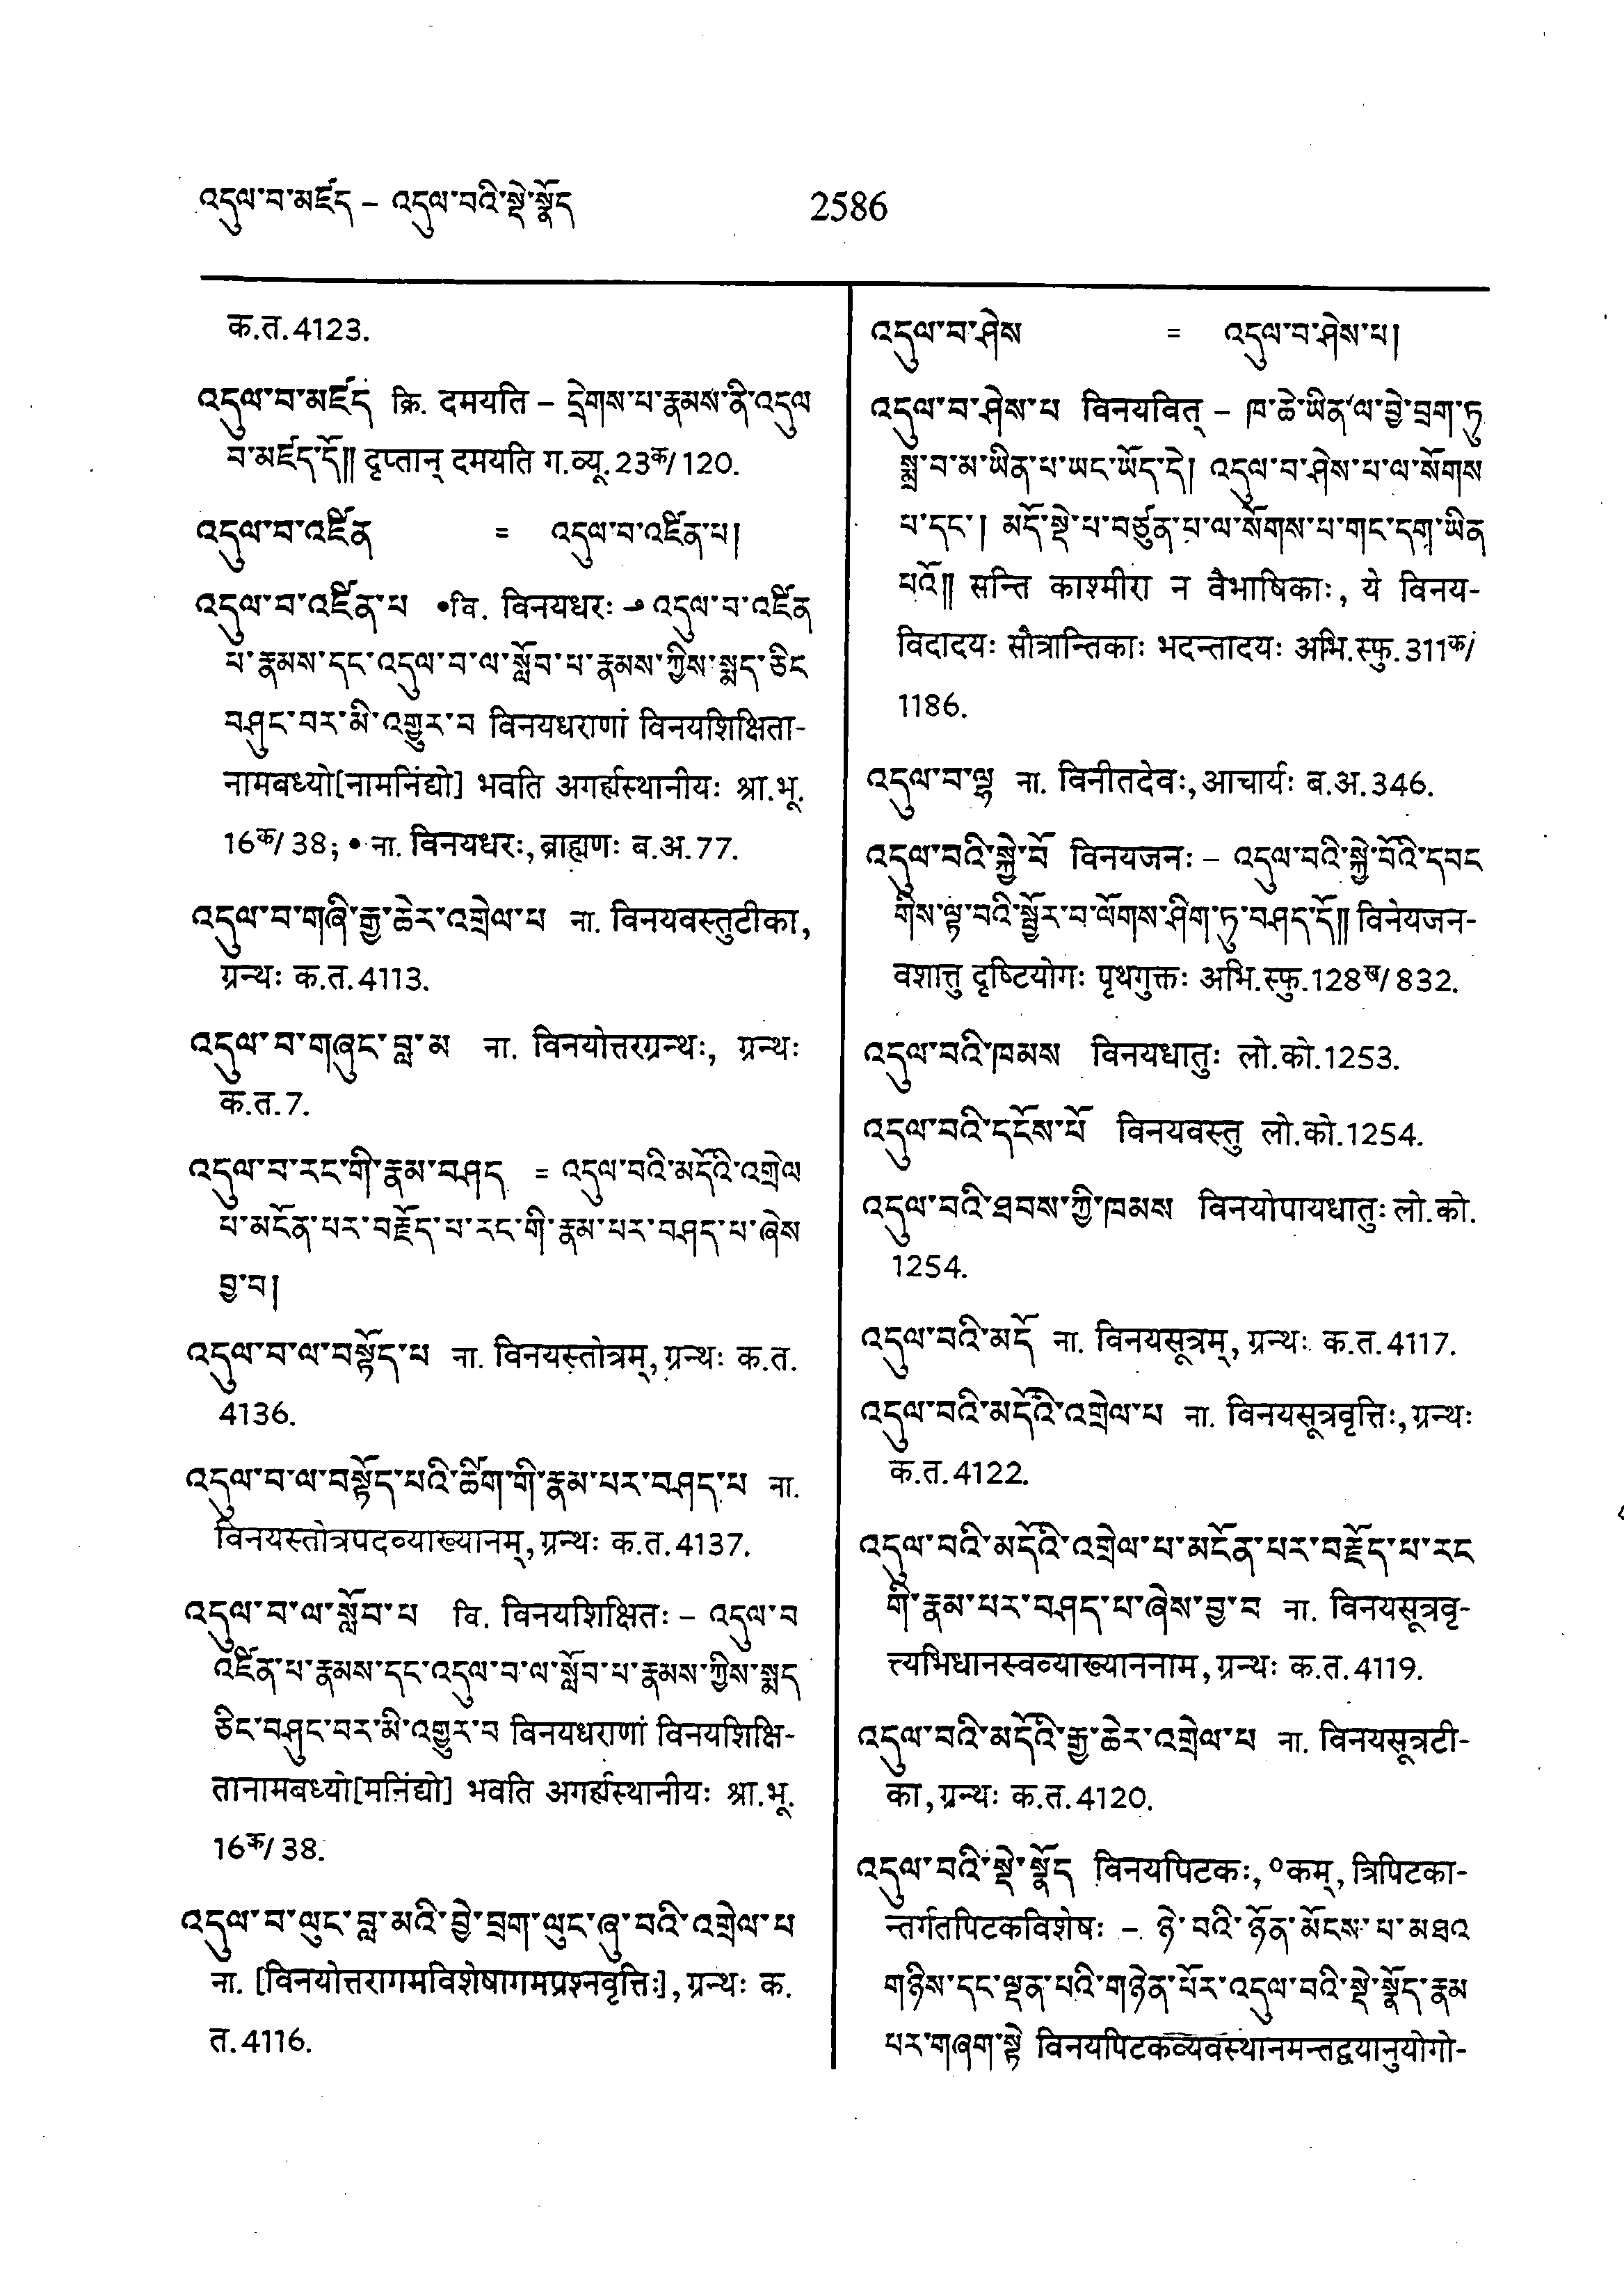 འདུལ་བ་མཛད – འདུལ་བའི་སྡེ་སྣོད
2586
क.त.4123.
འདུལ་བ་མཛད क्रि. दमयति – དྲེགས་པ་རྣམས་ནི་འདུལ
བ་མཛད་དོ།། दृप्तान् दमयति ग.व्यू.23क/120.
འདུལ་བ་འཛིན = འདུལ་བ་འཛིན་པ།
འདུལ་བ་འཛིན་པ •वि. विनयधरः – འདུལ་བ་འཛིན
པ་རྣམས་དང་འདུལ་བ་ལ་སློབ་པ་རྣམས་ཀྱིས་སྨད་ཅིང
བཤུང་བར་མི་འགྱུར་བ विनयधराणां विनयशिक्षिता-
नामबध्यो[नामनिंद्यो] भवति अगर्ह्यस्थानीयः श्रा.भू.
16क/38; • ना. विनयधरः, ब्राह्मणः ब.अ.77.
འདུལ་བ་གཞི་རྒྱ་ཆེར་འགྲེལ་པ ना. विनयवस्तुटीका,
ग्रन्थः क.त.4113.
འདུལ་བ་གཞུང་བླ་མ ना. विनयोत्तरग्रन्थः, ग्रन्थः
क.त.7.
འདུལ་བ་རང་གི་རྣམ་བཤད = འདུལ་བའི་མདོའི་འགྲེལ
པ་མངོན་པར་བརྗོད་པ་རང་གི་རྣམ་པར་བཤད་པ་ཞེས
བྱ་བ།
འདུལ་བ་ལ་བསྟོད་པ ना. विनयस्तोत्रम्, ग्रन्थः क.त.
4136.
འདུལ་བ་ལ་བསྟོད་པའི་ཚིག་གི་རྣམ་པར་བཤད་པ ना.
विनयस्तोत्रपदव्याख्यानम्, ग्रन्थः क.त.4137.
འདུལ་བ་ལ་སློབ་པ वि. विनयशिक्षितः – འདུལ་བ
འཛིན་པ་རྣམས་དང་འདུལ་བ་ལ་སློབ་པ་རྣམས་ཀྱིས་སྨད
ཅིང་བཤུང་བར་མི་འགྱུར་བ विनयधराणां विनयशिक्षि-
तानामबध्यो[मनिंद्यो] भवति अगर्ह्यस्थानीयः श्रा.भू.
16क/38.
འདུལ་བ་ལུང་བླ་མའི་བྱེ་བྲག་ལུང་ཞུ་བའི་འགྲེལ་པ
ना. [विनयोत्तरागमविशेषागमप्रश्नवृत्तिः], ग्रन्थः क.
त.4116.
འདུལ་བ་ཤེས = འདུལ་བ་ཤེས་པ།
འདུལ་བ་ཤེས་པ विनयवित् – ཁ་ཆེ་ཡིན་ལ་བྱེ་བྲག་ཏུ
སྨྲ་བ་མ་ཡིན་པ་ཡང་ཡོད་དེ། འདུལ་བ་ཤེས་པ་ལ་སོགས
པ་དང་། མདོ་སྡེ་པ་བཙུན་པ་ལ་སོགས་པ་གང་དག་ཡིན
པའོ།། सन्ति काश्मीरा न वैभाषिकाः, ये विनय-
विदादयः सौत्रान्तिकाः भदन्तादयः अभि.स्फु.311क/
1186.
འདུལ་བ་ལྷ ना. विनीतदेवः, आचार्यः ब.अ.346.
འདུལ་བའི་སྐྱེ་བོ विनयजनः – འདུལ་བའི་སྐྱེ་བོའི་དབང
གིས་ལྟ་བའི་སྦྱོར་བ་ལོགས་ཤིག་ཏུ་བཤད་དོ།། विनेयजन-
वशात्तु दृष्टियोगः पृथगुक्तः अभि.स्फु.128ष/832.
འདུལ་བའི་ཁམས विनयधातुः लो.को.1253.
འདུལ་བའི་དངོས་པོ विनयवस्तु लो.को.1254.
འདུལ་བའི་ཐབས་ཀྱི་ཁམས विनयोपायधातुः लो.को.
1254.
འདུལ་བའི་མདོ ना. विनयसूत्रम्, ग्रन्थः क.त.4117.
འདུལ་བའི་མདོའི་འགྲེལ་པ ना. विनयसूत्रवृत्तिः, ग्रन्थः
क.त.4122.
འདུལ་བའི་མདོའི་འགྲེལ་པ་མངོན་པར་བརྗོད་པ་རང
གི་རྣམ་པར་བཤད་པ་ཞེས་བྱ་བ ना. विनयसूत्रवृ-
त्त्यभिधानस्वव्याख्याननाम, ग्रन्थः क.त.4119.
འདུལ་བའི་མདོའི་རྒྱ་ཆེར་འགྲེལ་པ ना. विनयसूत्रटी-
का, ग्रन्थः क.त.4120.
འདུལ་བའི་སྡེ་སྣོད विनयपिटकः, ०कम्, त्रिपिटका-
न्तर्गतपिटकविशेषः – ཉེ་བའི་ཉོན་མོངས་པ་མཐའ
གཉིས་དང་ལྡན་པའི་གཉེན་པོར་འདུལ་བའི་སྡེ་སྣོད་རྣམ
པར་གཞག་སྟེ विनयपिटकव्यवस्थानमन्तद्वयानुयोगो-